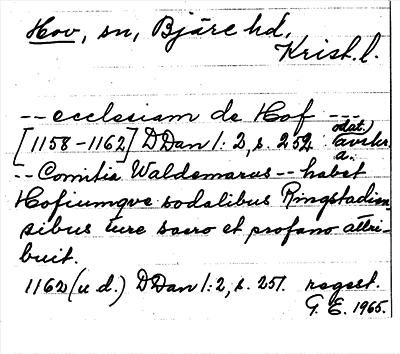 Hov, sn, Bjäre hd,
Krist. l.
-- ecclesiam de Hof ---
[1158-1162] DDan 1:2, s. 252 odat.) avskr.
a.
-- Comitia Waldemarus -- habet
Hofiumqve sodalibus Ringstadien-
sibus iure sacro et profano attri-
buit.
1162 (u d.) DDan 1:2, s. 251. regest.
G. E. 1965.